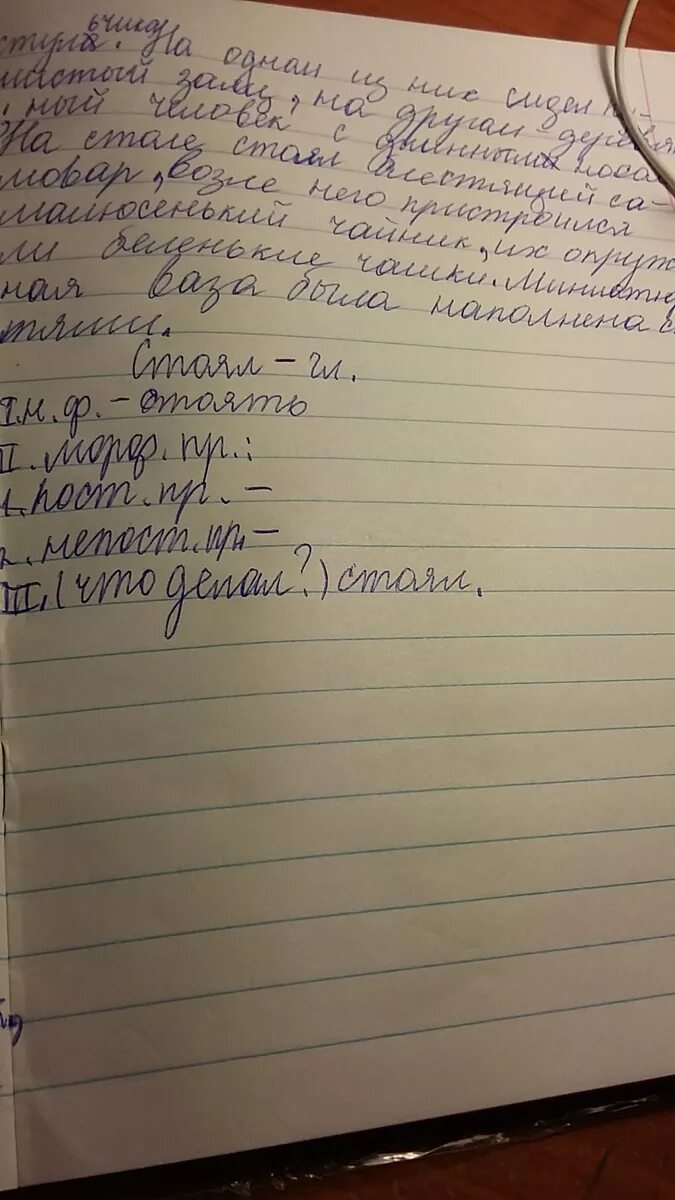 ьчика
стула. На одном из них сидел п-
шистый заяц, на другом - деревян
ный человек с длинным носом
На столе стоял блестящий са-
мовар, возле него пристроился
малюсенький чайник, их окруж
ли беленькие чашки. Миниатюр
ная ваза была наполнена с
тями.
Стоял - гл.
I. н. ф. - стоять
II. морф. пр.:
1. пост. пр. -
2. непост. пр. -
III. (что делал?) стоял.